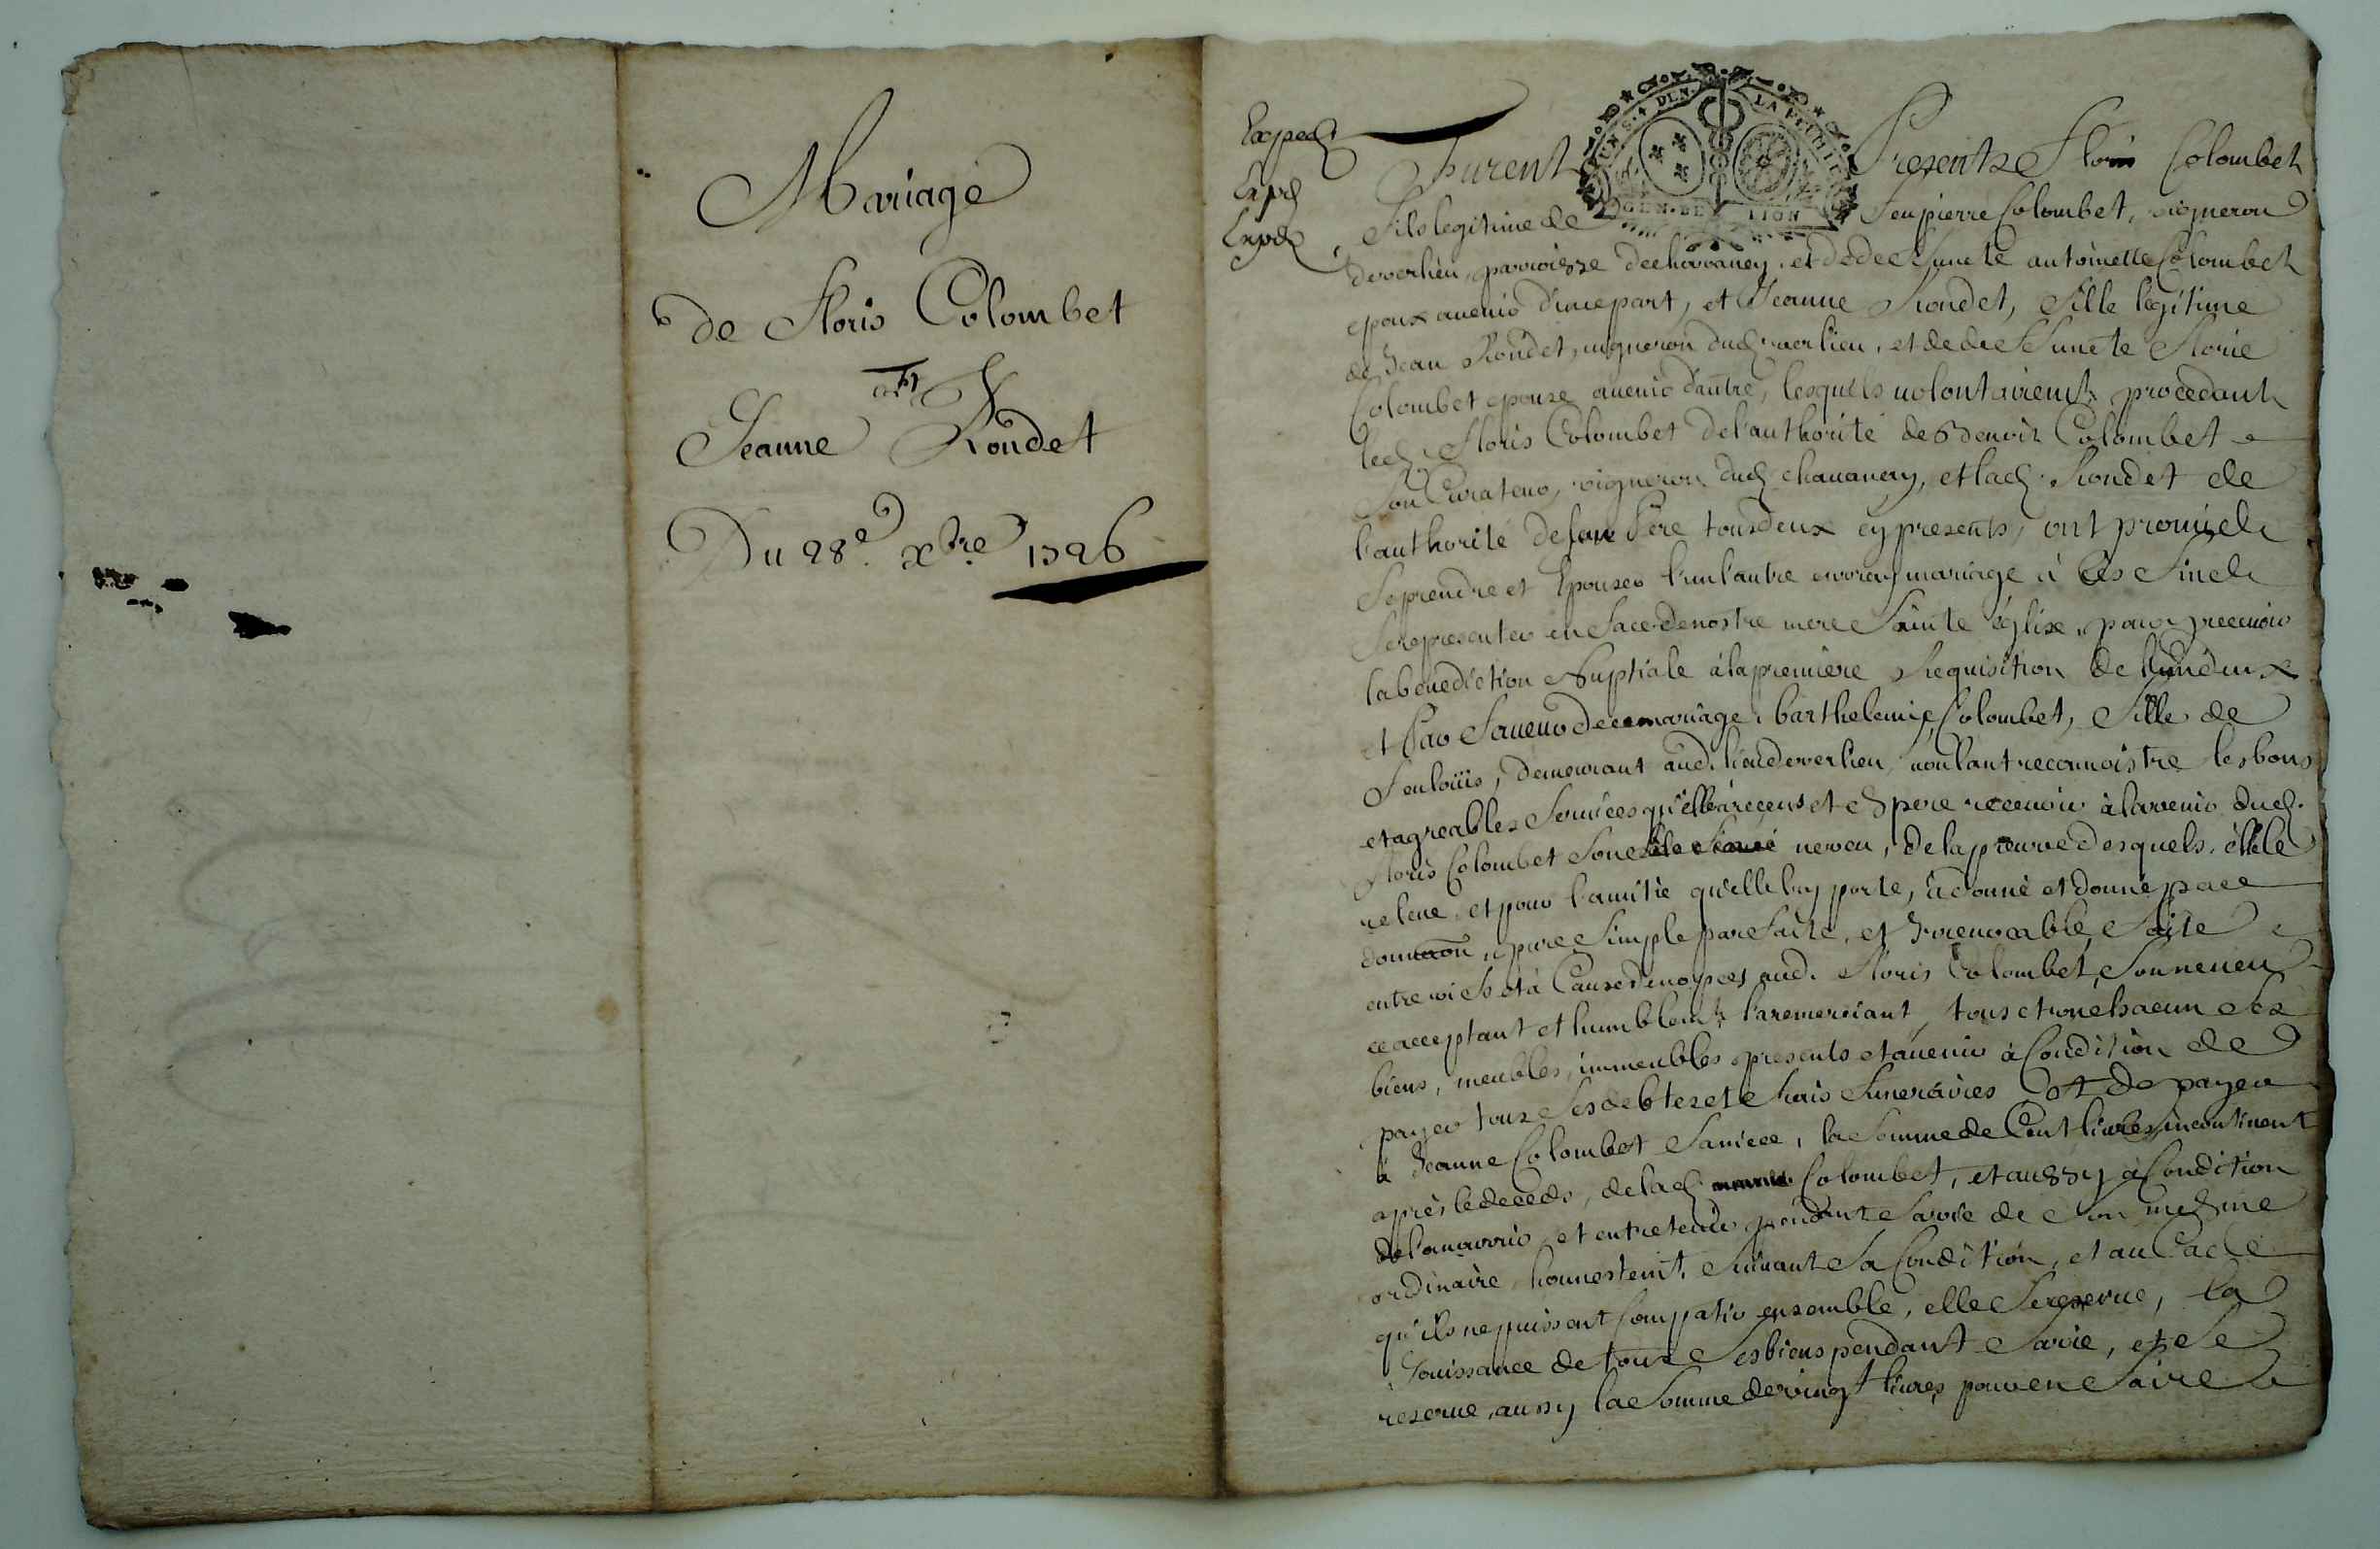 Mariage
de Floris Colombet
et
Jeanne Rondet
Du 28e. xbre 1726
Exped
Exped
Exped
Furent Presents Floris Colombet
Fils legitime de Feu pierre Colombet, vigneron
deverlieu, parroisse de chavaney, et de deffuncte antoinette Colombet
epoux avenir d'une part, et Jeanne Rondet, Fille legitime
de Jean Rondet, vigneron dud. verlieu, et de deffuncte Florie
Colombet epouse avenir d'autre, lesquels volontairemt. procedant
led. Floris Colombet de l'authorité de Benoit Colombet
Son Curateur, vigneron dud. chavanay, et lad. Rondet de
l'authorité de son Père tous deux cy presents, ont promis de
Se prendre et Epouser l'un l'autre en vray mariage à Ces Fins de
Se representer en Face de nostre mere Sainte église, pour y recevoir
la benediction Nuptiale à la premiere Requisition de l'un deux
et Par Faveur de ce mariage, barthelemie Colombet, Fille de
Feu loüis, Demeurant aud. lieu de verlieu, voulant reconnoistre les bons
et agreables Services qu'elle à receus et Espere recevoir à l'avenir dud.
Floris Colombet Son neveu, de la preuve desquels, elle le
releve, et pour l'amitié qu'elle luy porte, à donné et donne par
donnaon, pure Simple parfaite, et Irrevocable, Faite
entre vifs et à Cause de nopces aud. Floris Colombet, Son neveu
acceptant et humblemt. l'aremerciant, tous et un chacun Ses
biens, meubles, immeubles, presents et avenir à Condition de
payer tous Ses debtes et Frais Funeraires Et de payer
à Jeanne Colombet Sa niece, la Somme de Cent livres, incontinent
après le deceds, de lad. Colombet, et aussy à Condition
de la nourrir, et entretenir pendant Sa vie de Son mesme
ordinaire, honnestemt. Suivant Sa Condition, et au Cas
qu'ils ne puissent Compatir ensemble, elle Se reserve, la
Jouissance de tous Ses biens pendant Sa vie, et Se
reserve, aussy la Somme de vingt livres, pour en Faire
FERM. GEN. DE LION